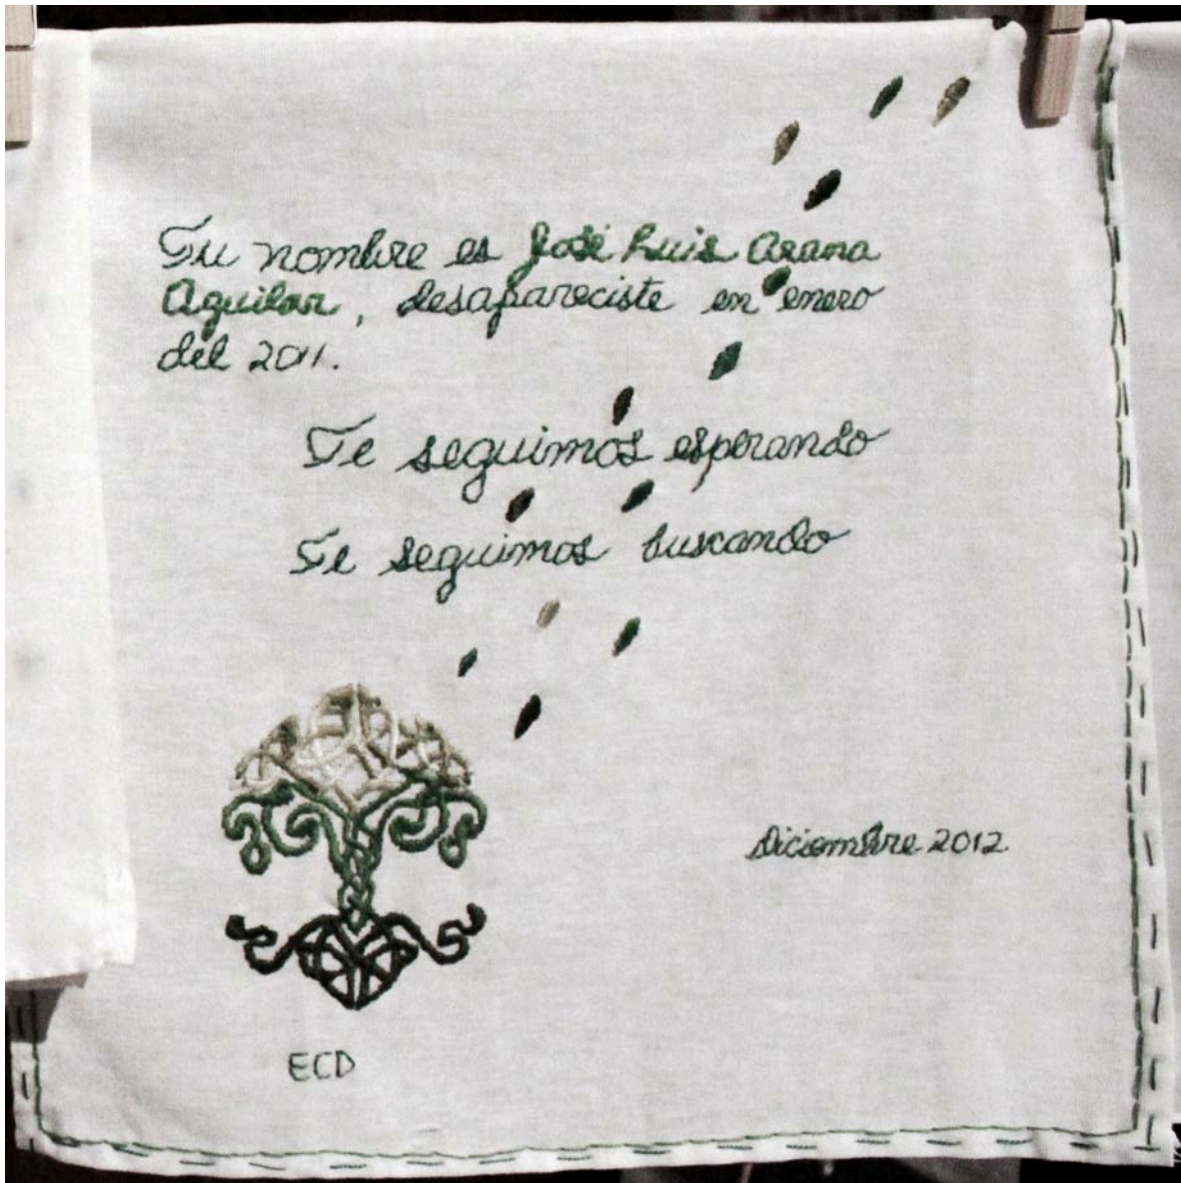 Tu nombre es José Luis Arana
Aguilar, desapareciste en enero
del 2011.
Te seguimos esperando
Te seguimos buscando
Diciembre 2012
ECD